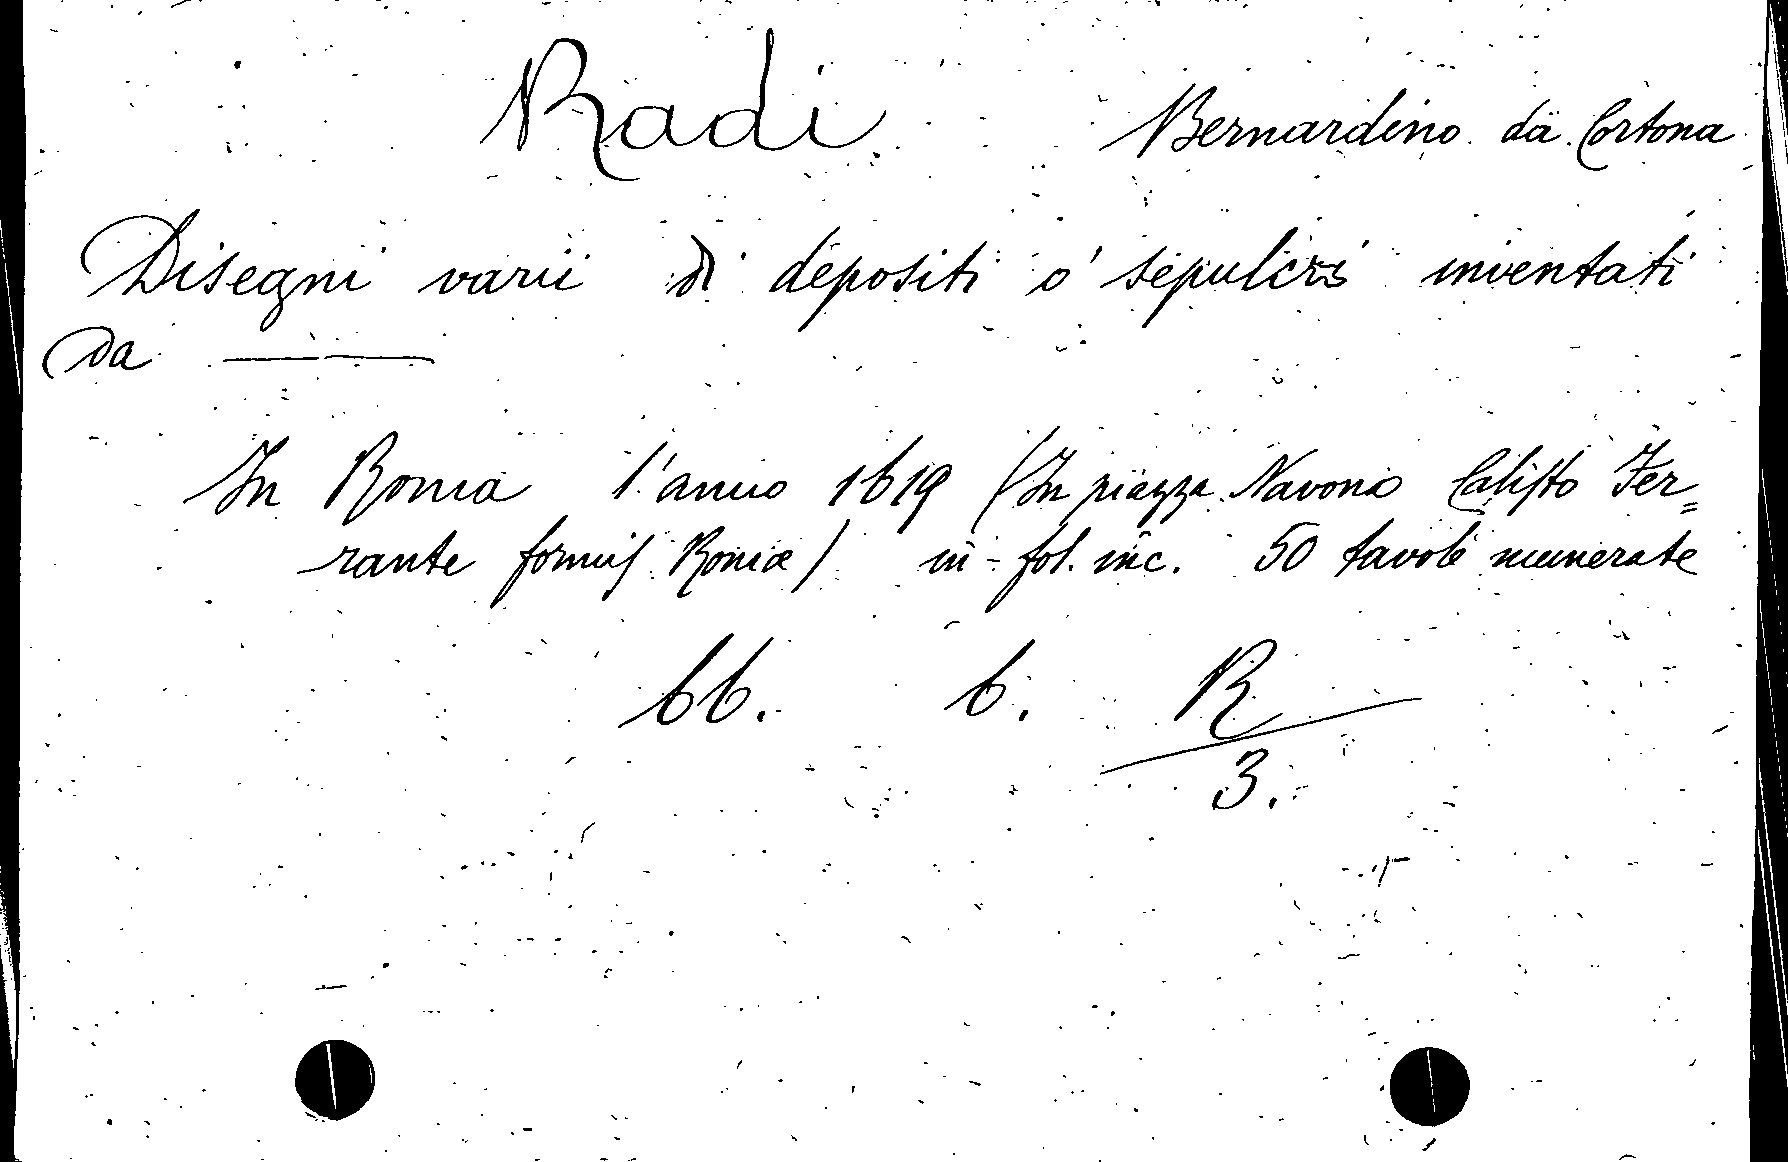 Radi Bernardino da Cortona
Disegni varii di depositi o' sepulcri inventati
da ———
In Roma l'anno 1619 (In piazza Navona Califto Fer=
rante formis Romæ) in-fol. inc. 50 tavole numerate
bb. b. R
3.